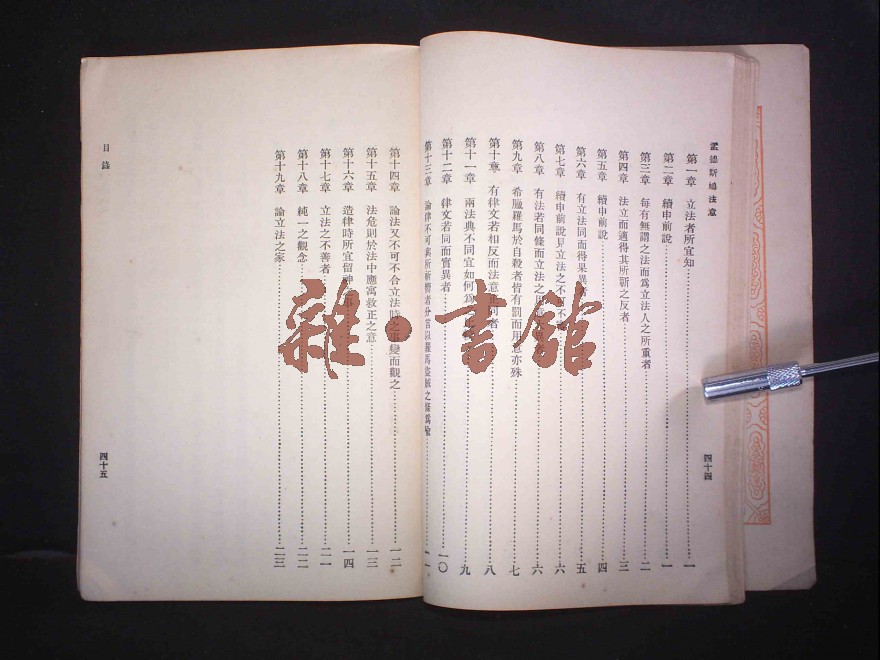 孟德斯鳩法意
第一章 立法者所宜知……一
第二章 續申前說……一
第三章 每有無謂之法而爲立法人之所重者……二
第四章 法立而適得其所蘄之反者……三
第五章 續申前說……四
第六章 有立法同而得果異……五
第七章 續申前說見立法之不可不……六
第八章 有法若同條而立法之……六
第九章 希臘羅馬於自殺者皆有罰而用意亦殊……七
第十章 有律文若相反而法意正同者……八
第十一章 兩法典不同宜如何爲……九
第十二章 律文若同而實異者……一〇
第十三章 論律不可與所祈嚮者分當以羅馬盜賊之條爲喻……一一
四十四
第十四章 論法又不可不合立法時之事變而觀之……一二
第十五章 法危則於法中應寓救正之意……一三
第十六章 造律時所宜留神……一四
第十七章 立法之不善者……二一
第十八章 純一之觀念……二二
第十九章 論立法之家……二三
目錄
四十五
雜·書館